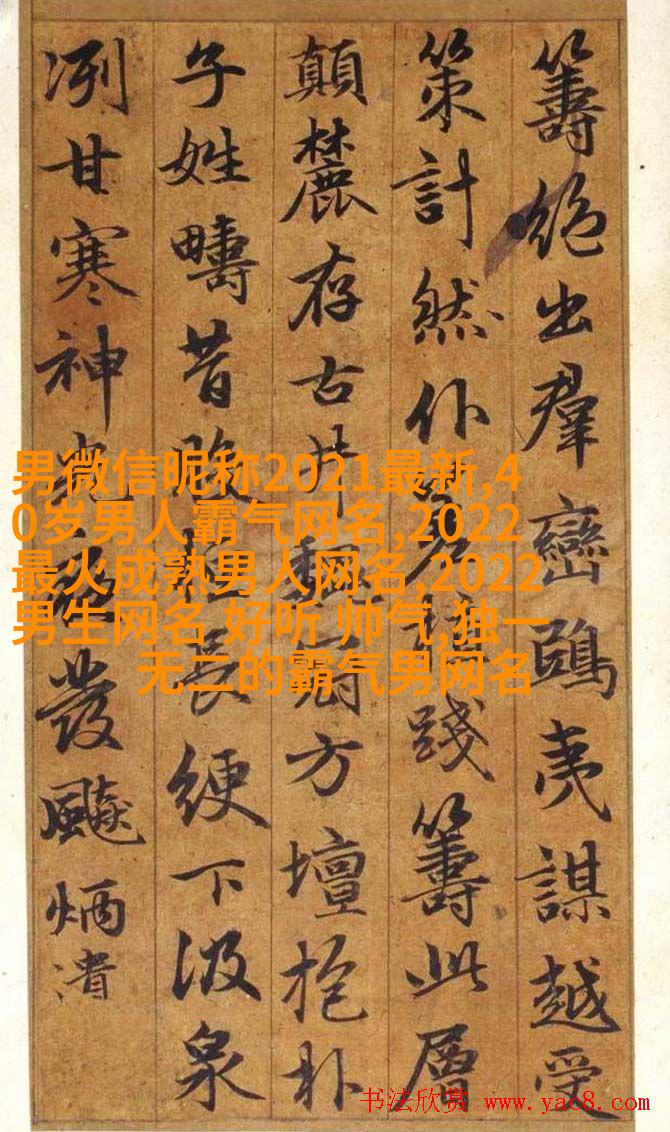 籌絶出羣巒鴟夷謀越受
策計然仆踐籌此層
顛麓存古方壇抱朴
子姓疇昔長綆下汲泉
冽甘寒神發飈炳
男微信昵称2021最新,4
0岁男人霸气网名,2022
最火成熟男人网名,2022
男生网名 好听 帅气,独一
无二的霸气男网名
书法欣赏 www.yac8.com